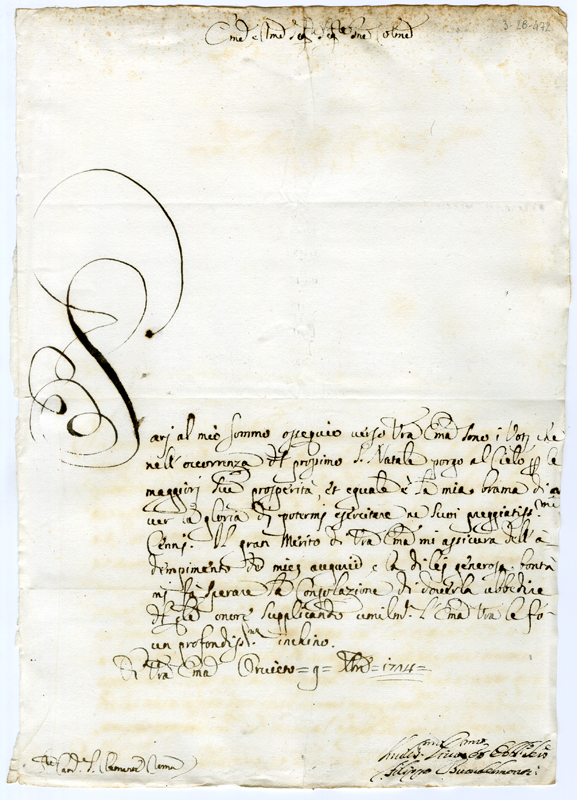 3-28-472
Em̃o e Rm̃o Sig.r Sig.r e Pñe Colm̃o
Pari al mio sommo ossequio verso Vr̃a Em̃a sono i Voti che
nell'occorrenza del prossimo S. Natale porgo al Cielo per le
maggiori sue prosperità, et eguale è la mia brama di a
ver la gloria di potermi esercitare ne suoi preggiatiss.mi
Cenni. Il gran Merito di Vr̃a Em̃a mi assicura dell'a
dempimento de miei augurii e la di lei generosa bontà
mi fà sperare la Consolazione di doverla ubbidire
del che onore supplicando umilm.te l'Em̃a Vr̃a le fò
un profondiss.mo inchino.
Di Vr̃a Em̃a Orvieto = 9 = Xbre = 1714 =
Humil.mo
Filippo Buondelmonti
Card. S. Clemente Roma